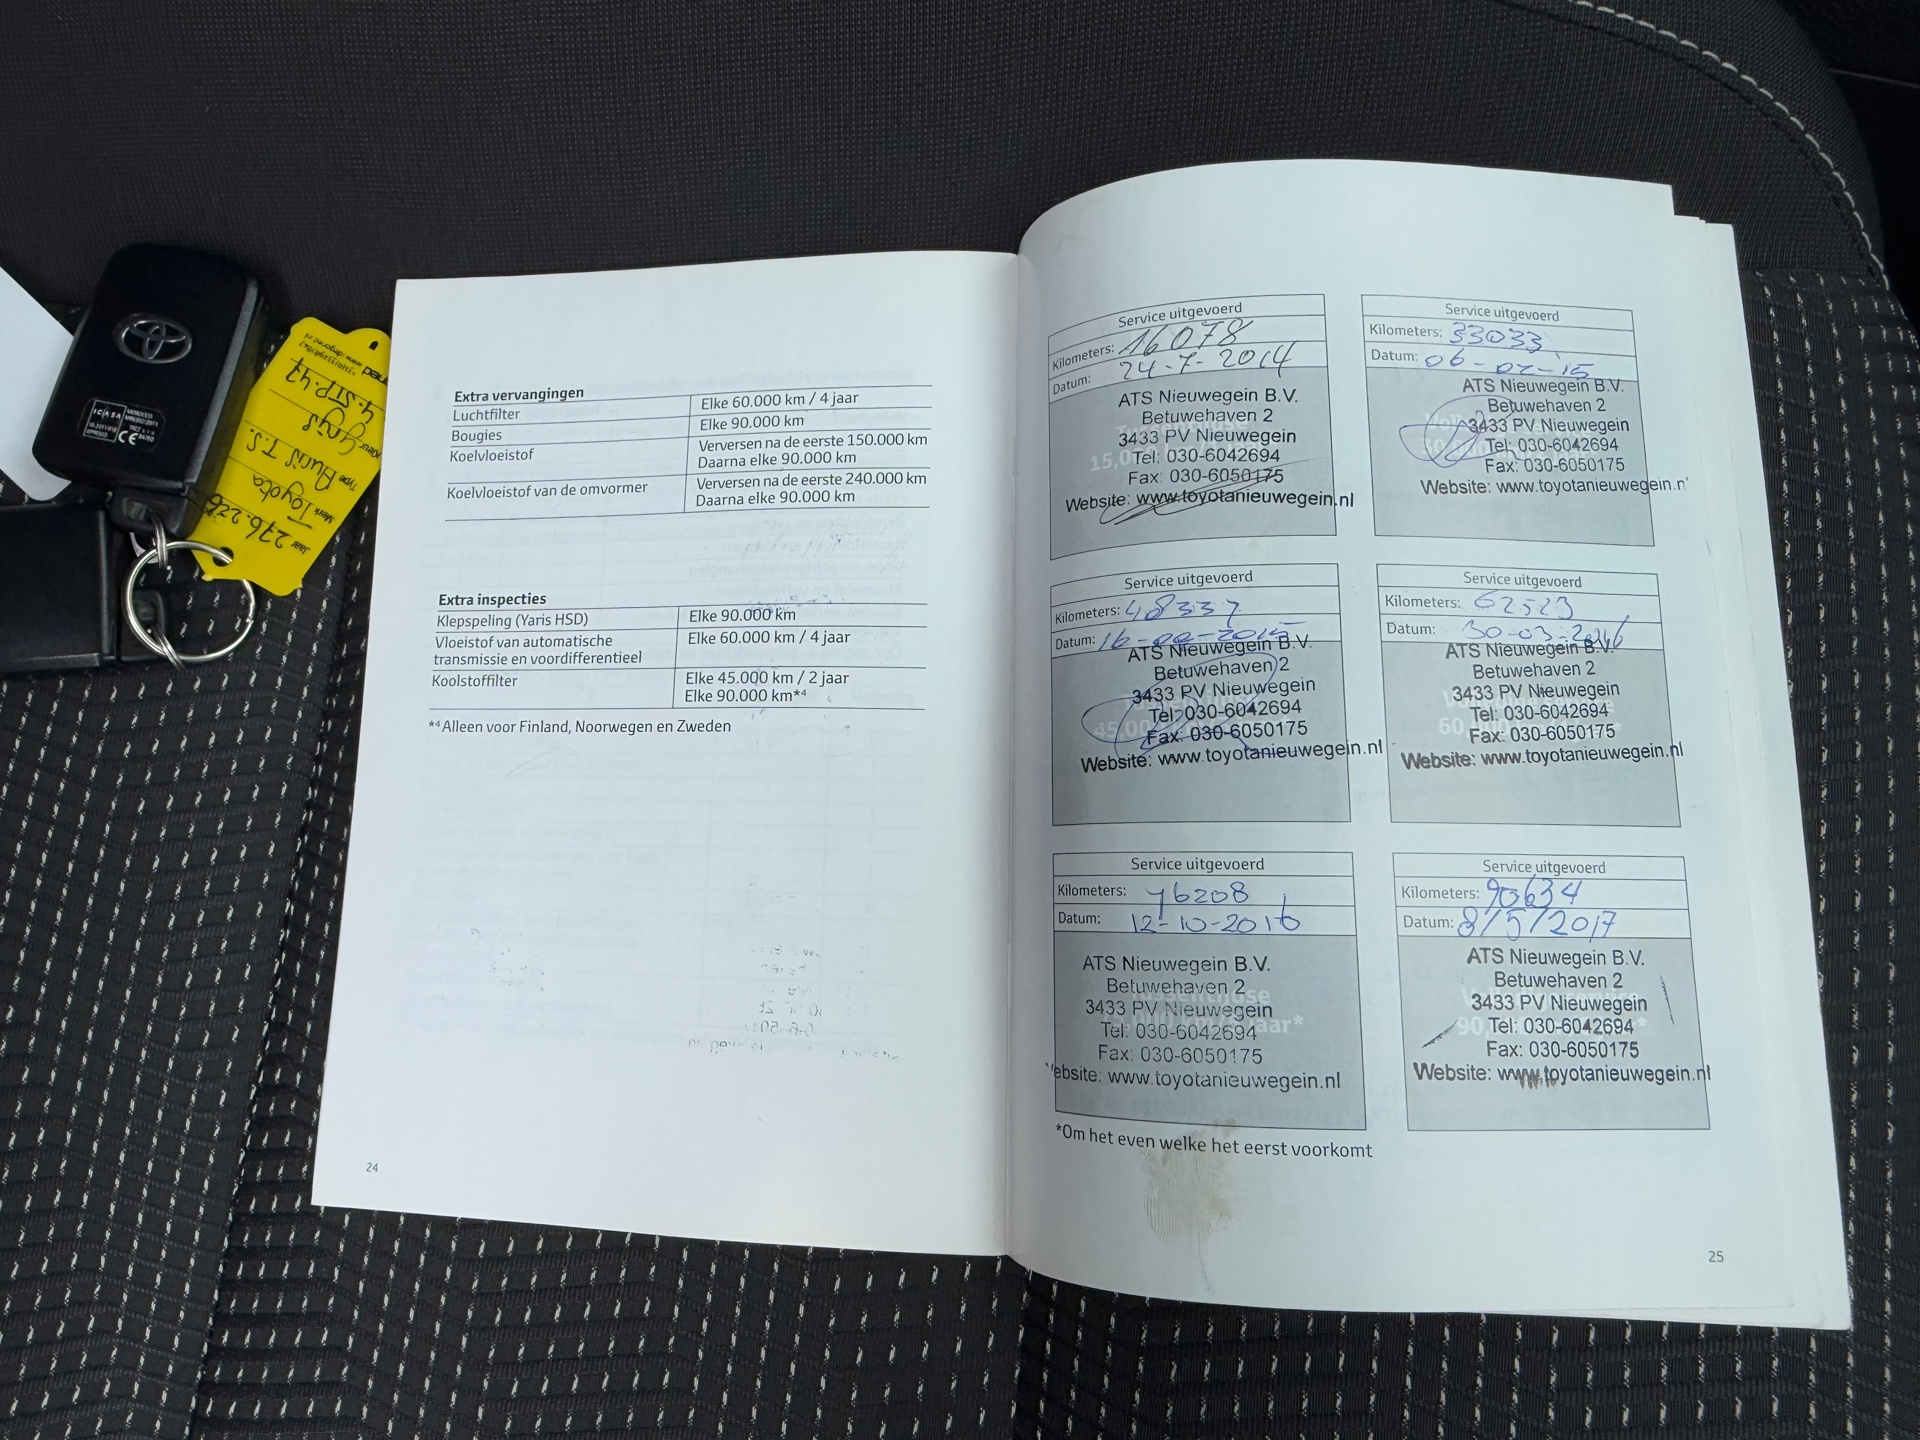 Extra vervangingen
Luchtfilter Elke 60.000 km / 4 jaar
Bougies Elke 90.000 km
Koelvloeistof Verversen na de eerste 150.000 km
Daarna elke 90.000 km
Koelvloeistof van de omvormer Verversen na de eerste 240.000 km
Daarna elke 90.000 km
Extra inspecties
Klepspeling (Yaris HSD) Elke 90.000 km
Vloeistof van automatische Elke 60.000 km / 4 jaar
transmissie en voordifferentieel
Koolstoffilter Elke 45.000 km / 2 jaar
Elke 90.000 km*4
*4 Alleen voor Finland, Noorwegen en Zweden
24
Service uitgevoerd
Kilometers: 16078
Datum: 24-7-2014
ATS Nieuwegein B.V.
Betuwehaven 2
3433 PV Nieuwegein
Tel: 030-6042694
Fax: 030-6050175
Website: www.toyotanieuwegein.nl
Service uitgevoerd
Kilometers: 33033
Datum: 06-02-15
ATS Nieuwegein B.V.
Betuwehaven 2
3433 PV Nieuwegein
Tel: 030-6042694
Fax: 030-6050175
Website: www.toyotanieuwegein.n
Service uitgevoerd
Kilometers: 48337
Datum:
ATS Nieuwegein B.V.
Betuwehaven 2
3433 PV Nieuwegein
Tel: 030-6042694
Fax: 030-6050175
Website: www.toyotanieuwegein.nl
Service uitgevoerd
Kilometers: 62523
Datum: 30-03-2016
ATS Nieuwegein B.V.
Betuwehaven 2
3433 PV Nieuwegein
Tel: 030-6042694
Fax: 030-6050175
Website: www.toyotanieuwegein.nl
Service uitgevoerd
Kilometers: 76208
Datum: 12-10-2016
ATS Nieuwegein B.V.
Betuwehaven 2
3433 PV Nieuwegein
Tel: 030-6042694
Fax: 030-6050175
ebsite: www.toyotanieuwegein.nl
Service uitgevoerd
Kilometers: 90634
Datum: 8/5/2017
ATS Nieuwegein B.V.
Betuwehaven 2
3433 PV Nieuwegein
Tel: 030-6042694
Fax: 030-6050175
Website: www.toyotanieuwegein.nl
*Om het even welke het eerst voorkomt
25
Jaar 276.226
Merk Toyota
Type Auris T.S.
Kleur Grijs
4-STP-47
ICASA
CE